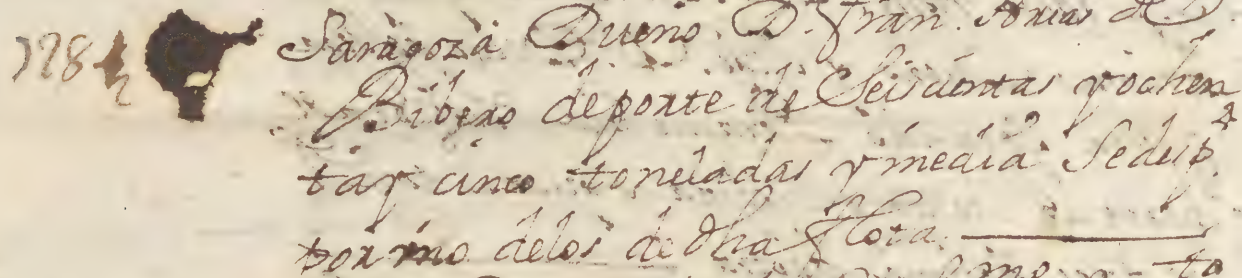 Saragoza Dueño D. Fran. Arias de
Bibero deporte de Seiscientas yochen
tay cinco toneladas ymedia Sedesp.
por mro delos de dha flota